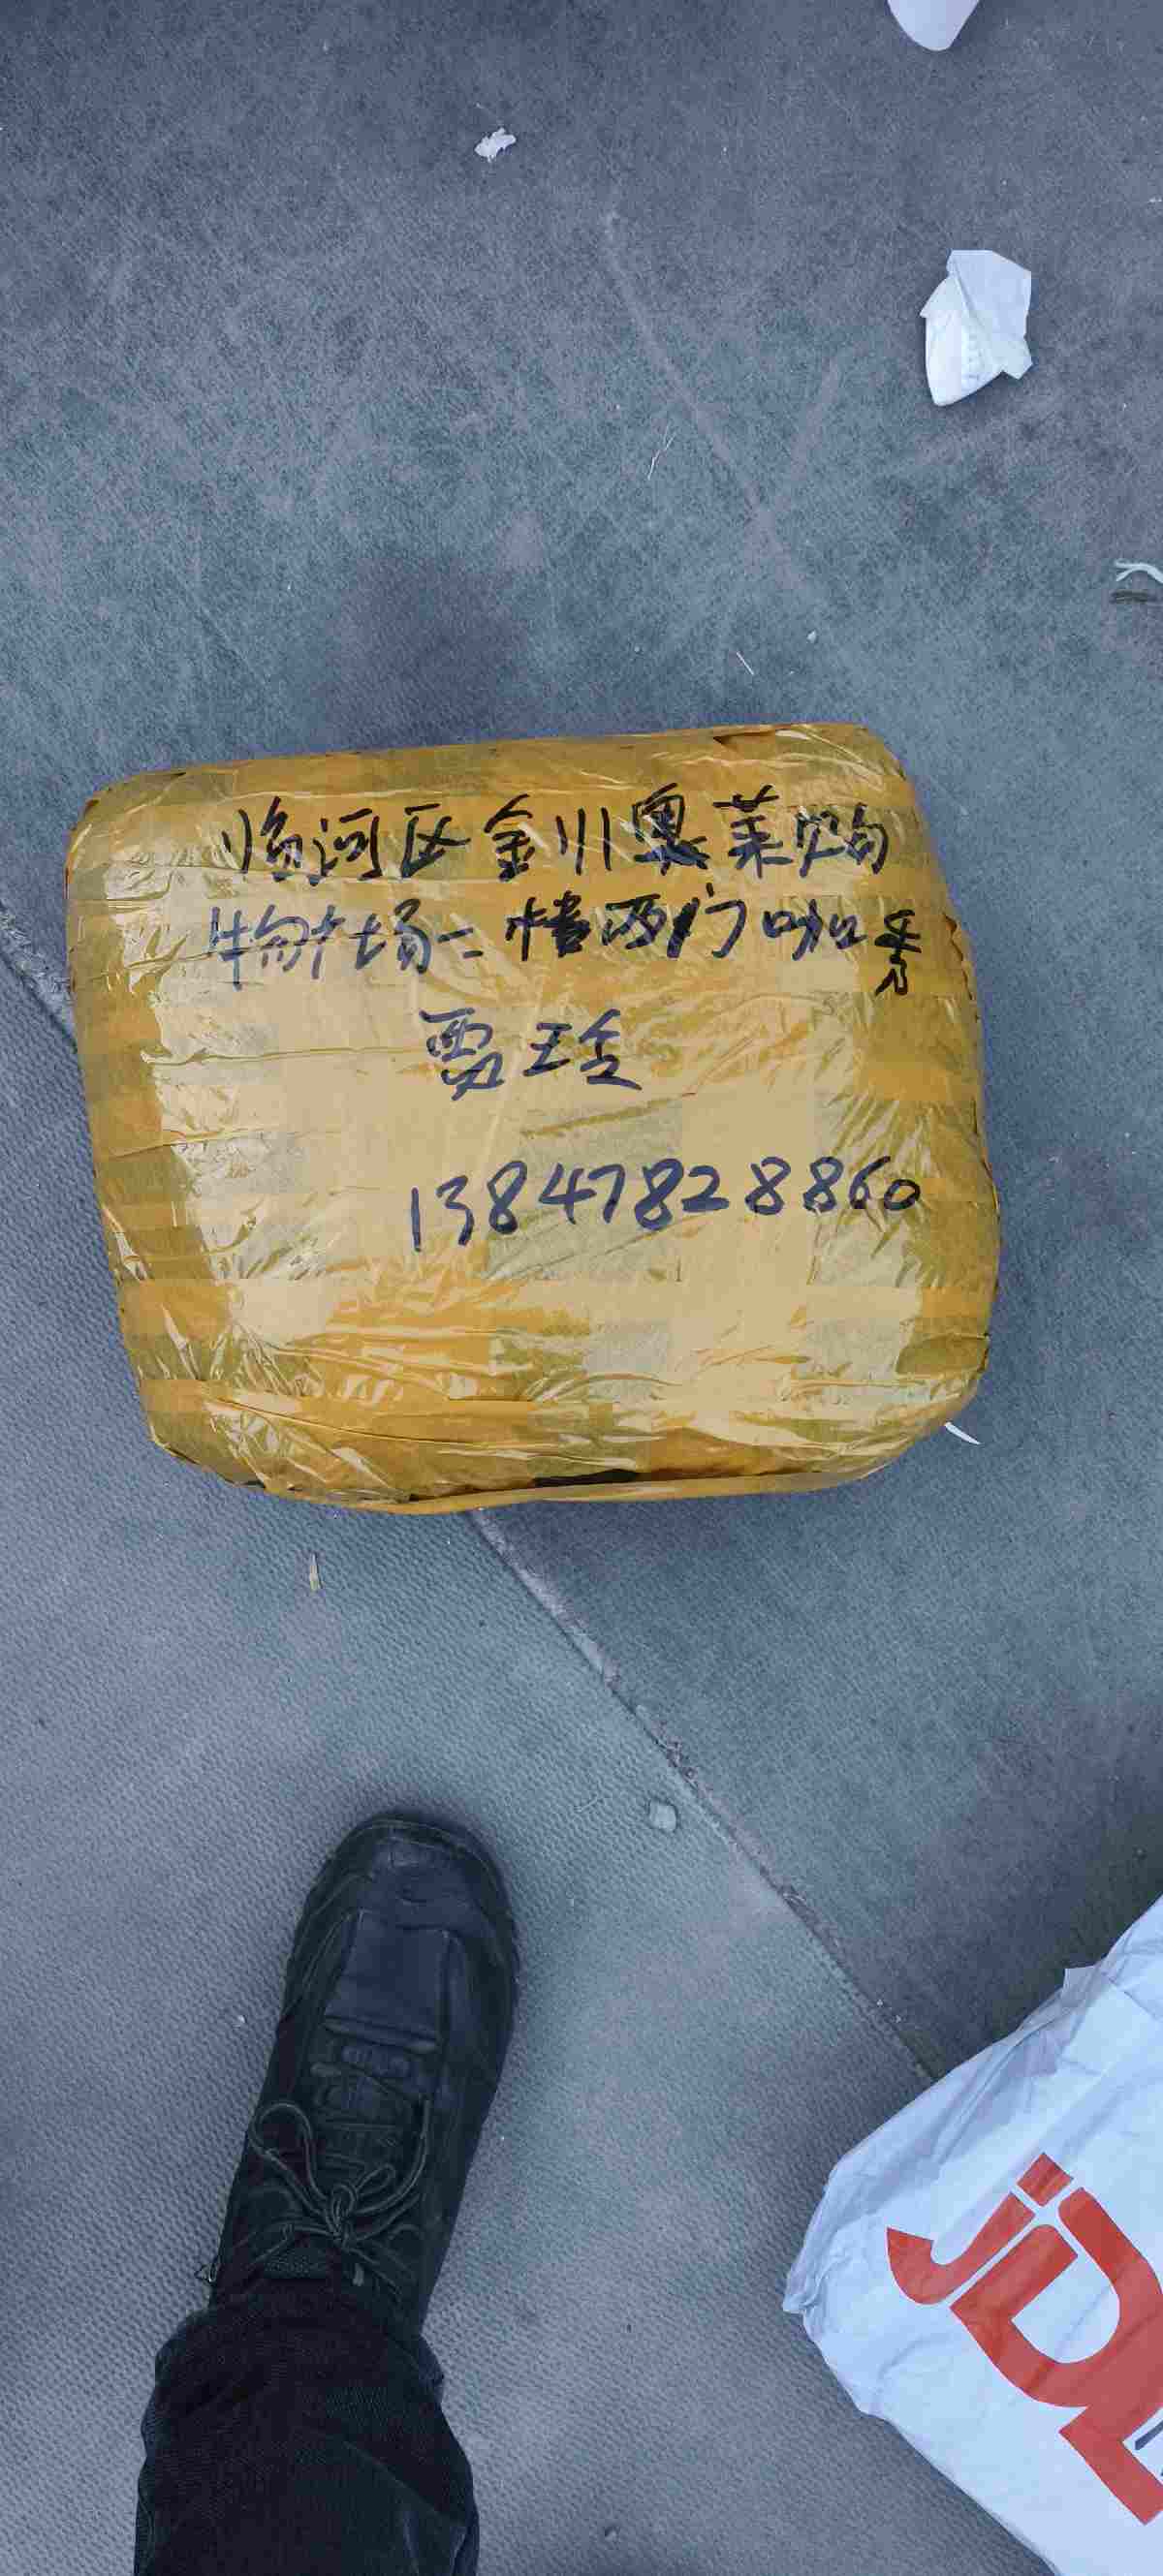 临河区金川奥莱购
物广场二楼西门口如秀
贾玲
13847828860
JD